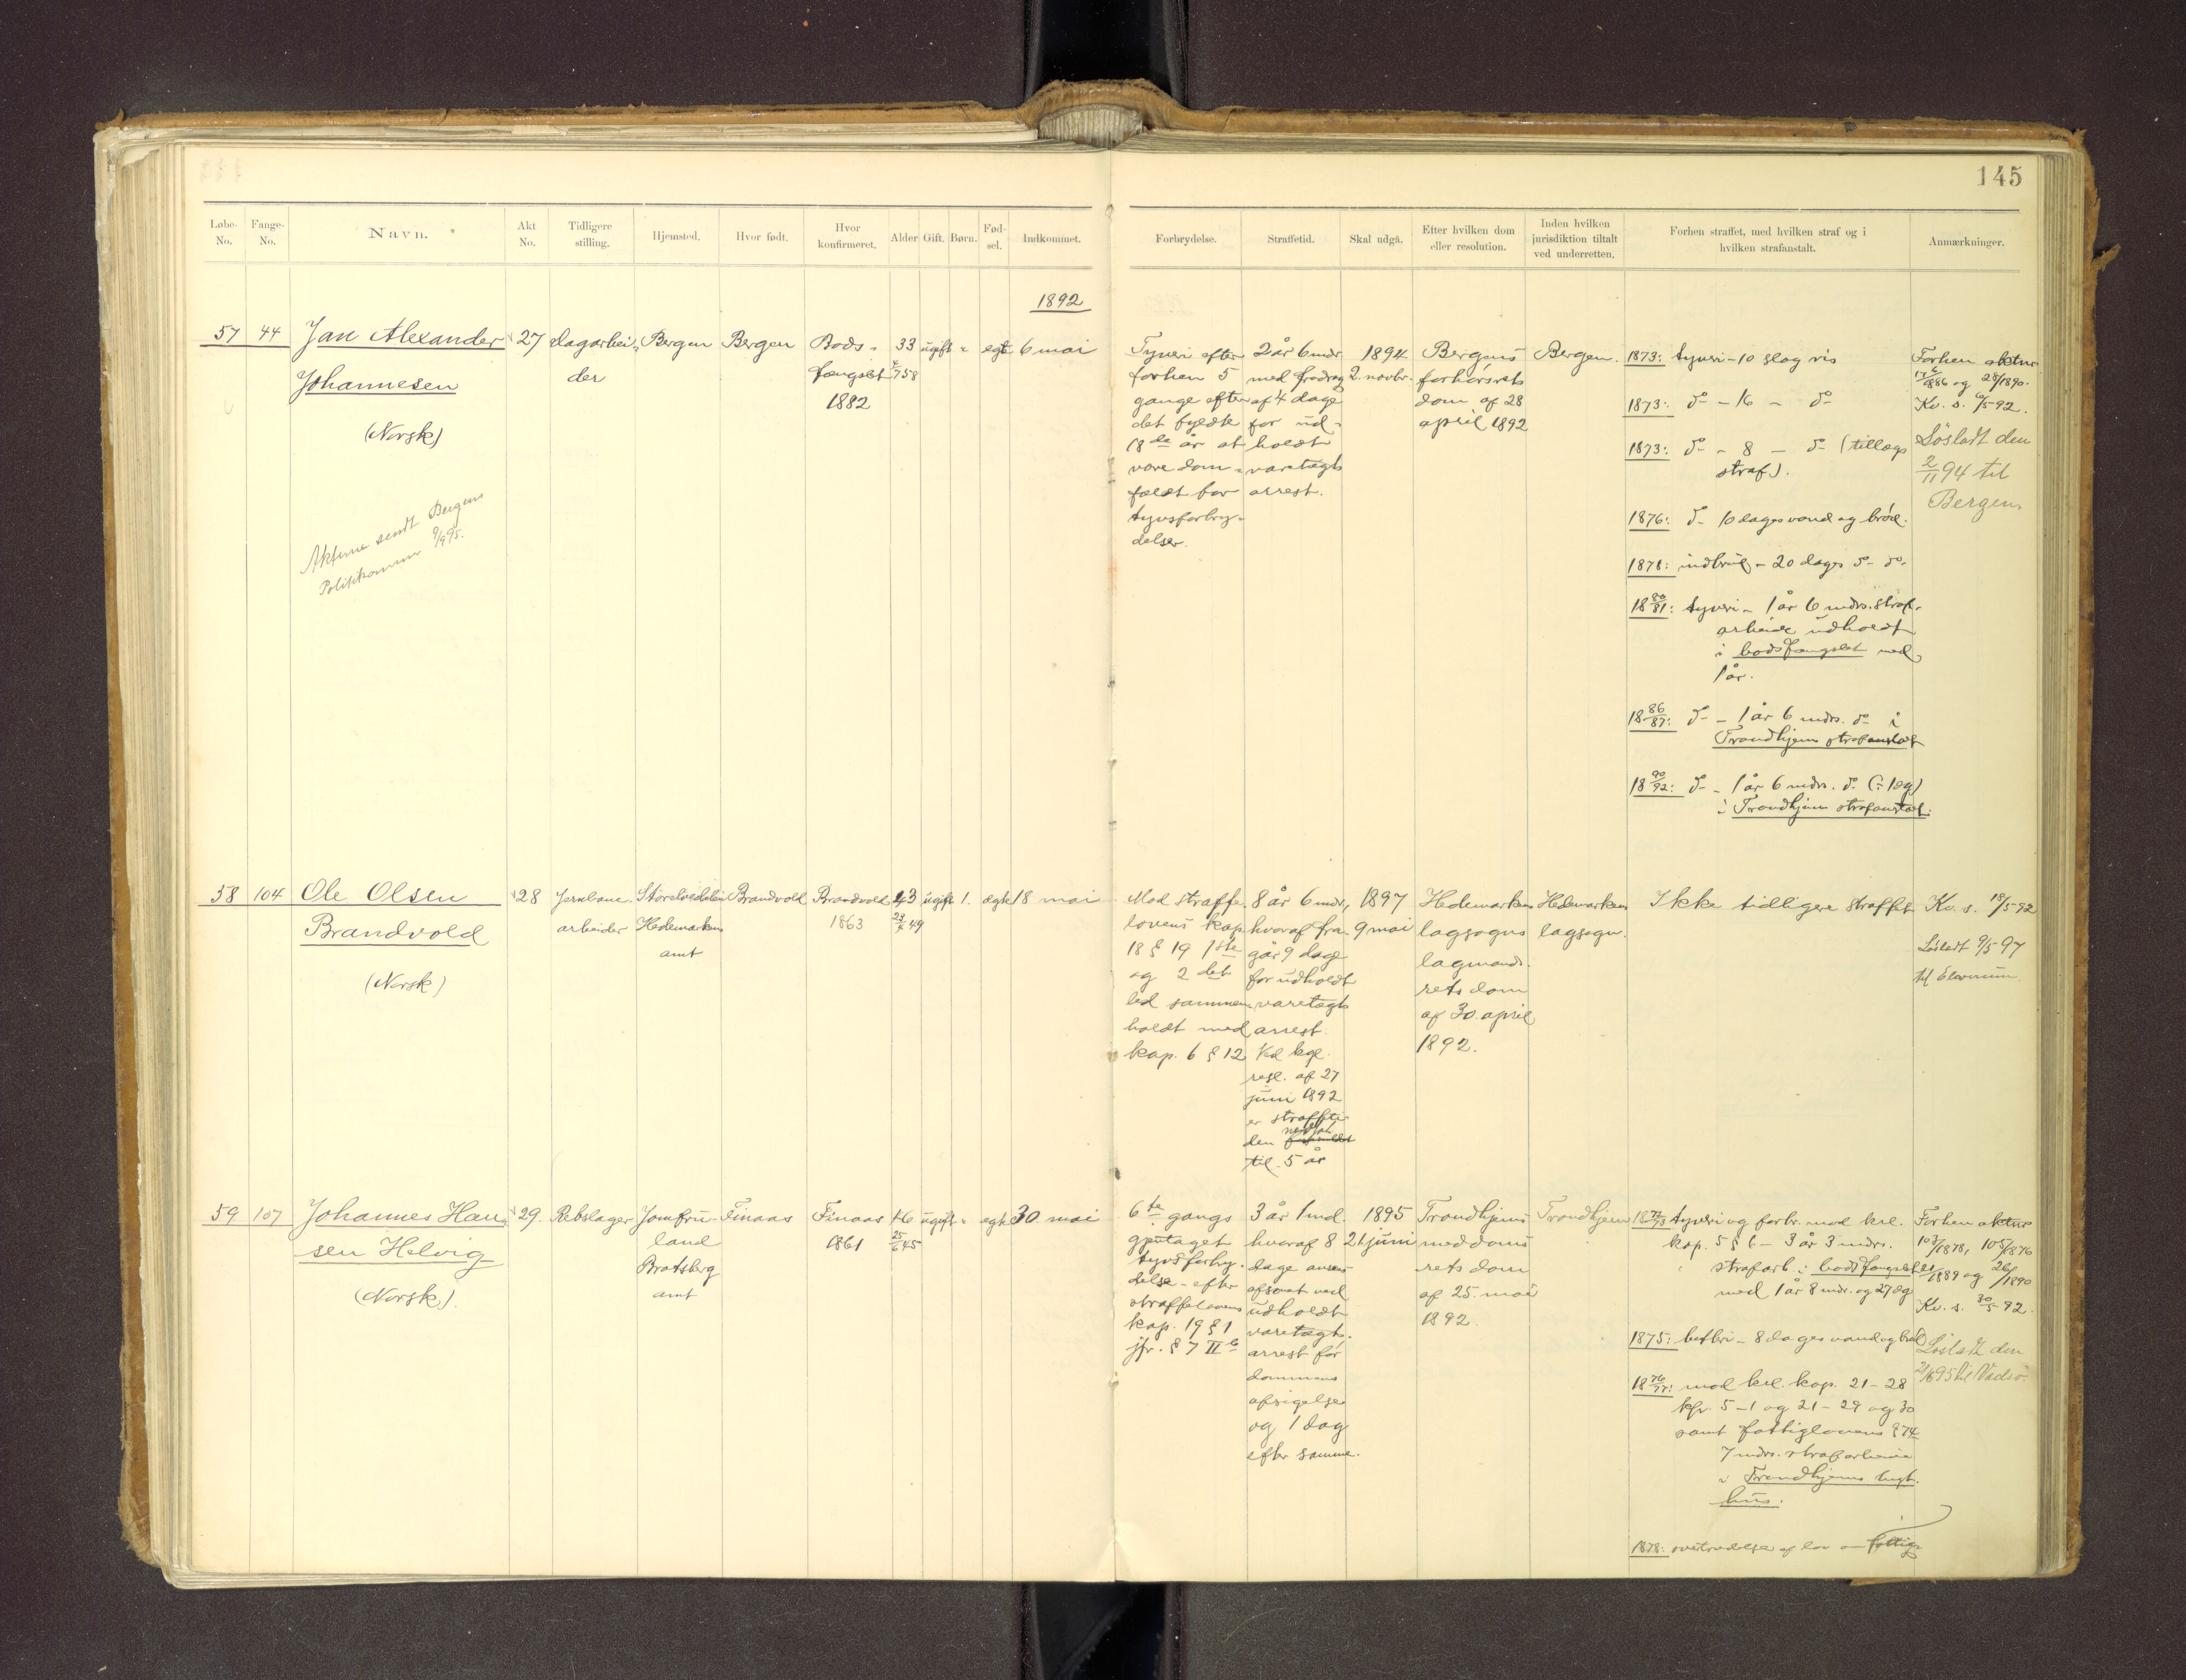 145
Løbe-No.
Fange-No.
Navn.
Akt No.
Tidligere stilling.
Hjemsted.
Hvor født.
Hvor konfirmeret.
Alder
Gift.
Børn.
Fød-sel.
Indkommet.
Forbrydelse.
Straffetid.
Skal udgå.
Efter hvilken dom eller resolution.
Inden hvilken jurisdiktion tiltalt ved underretten.
Forhen straffet, med hvilken straf og i hvilken strafanstalt.
Anmærkninger.
1892
57 44 Jan Alexander
Johannesen
(Norsk)
Akterne sendt Bergens
Politikammer
27
Dagarbei-
der
Bergen
Bergen
Bods-
fængslet
1882
33
ugift
"
egte
6 mai
Tyveri efter
forhen 5
gange efter
det fyldte
18de år at
være dom-
fældt for
tyvsforbry-
delser.
2 år 6 mdr.
med fradrag
af 4 dage
for ud-
holdt
varetægts
arrest.
1894
2. novbr.
Bergens
forhørsrets
dom af 28
april 1892
Bergen.
1873: tyveri - 10 slag ris
1873: do - 16 - do
1873: do - 8 - do (tillægs
straf).
1876: do 10 dages vand og brød.
1878: indbrud - 20 dages do- do-
18 80/81: tyveri - 1 år 6 mdrs. straf-
arbeide udholdt
i bodsfængslet med
1 år.
18 86/87: do - 1 år 6 mdrs. do i
Trondhjems strafanstalt
18 90/92: do - 1 år 6 mdrs. do (÷ 1 dg)
i Trondhjems strafanstalt.
Forhen aktnr
/1886 og 28/1890.
Kv. s. 6/5-92.
Løsladt den
2/11 94 til
Bergen
58 104 Ole Olsen
Brandvold
(Norsk)
28
Jernbane-
arbeider
Storelvedalen
Hedemarkens
amt
Brandvold
Brandvold
1863
43
49
ugift
1.
ægte
18 mai
Mod straffe
lovens kap.
18 § 19 1ste
og 2det
led sammen-
holdt med
kap. 6 § 12
8 år 6 mdr,
hvoraf fra-
går 9 dage
for udholdt
varetægts
arrest.
Ved kgl.
resl. af 27
juni 1892
er straffeti-
den nedsat
til 5 år
1897
9 mai
Hedemarkens
lagsogns
lagmands-
rets dom
af 30. april
1892.
Hedemarkens
lagsogn.
Ikke tidligere straffet
Kv. s. 18/5-92
Løsladt 9/5-97
til Elverum.
59 107 Johannes Han-
sen Helvig
(Norsk).
29.
Rebslager
Jomfru-
land
Bratsberg
amt
Finaas
Finaas
1861
46
25/6 45
ugift
"
egte
30 mai
6te gangs
gjentaget
tyvsforbry-
delse - efter
straffelovens
kap. 19 § 1
jfr. § 7 II b
3 år 1 md.
hvoraf 8
dage ansees
afsonet ved
udholdt
varetægts-
arrest før
dommens
afsigelse
og 1 dag
efter samme.
1895
21 juni
Trondhjems
meddoms
rets dom
af 25. mai
1892.
Trondhjem
tyveri og forbr. mod krl.
kap. 5 § 6 - 3 år 3 mdrs.
strafarb. i bodsfængslet
med 1 år 8 mdr. og 27 dg
1875: betleri - 8 dages vand og brød
18 76/77: mod krl. kap. 21-28
kfr. 5-1 og 21-29 og 30
samt fattiglovens § 74
7 mdrs. strafarbeide
i Trondhjems tugt-
hus.
1878: overtrædelse af lov om fattig-
Forhen aktnr
103/1878, 105/1876
21/1889 og 26/1890
Kv. s. 30/5-92.
Løsladt den
21/6 95 til Vadsø.